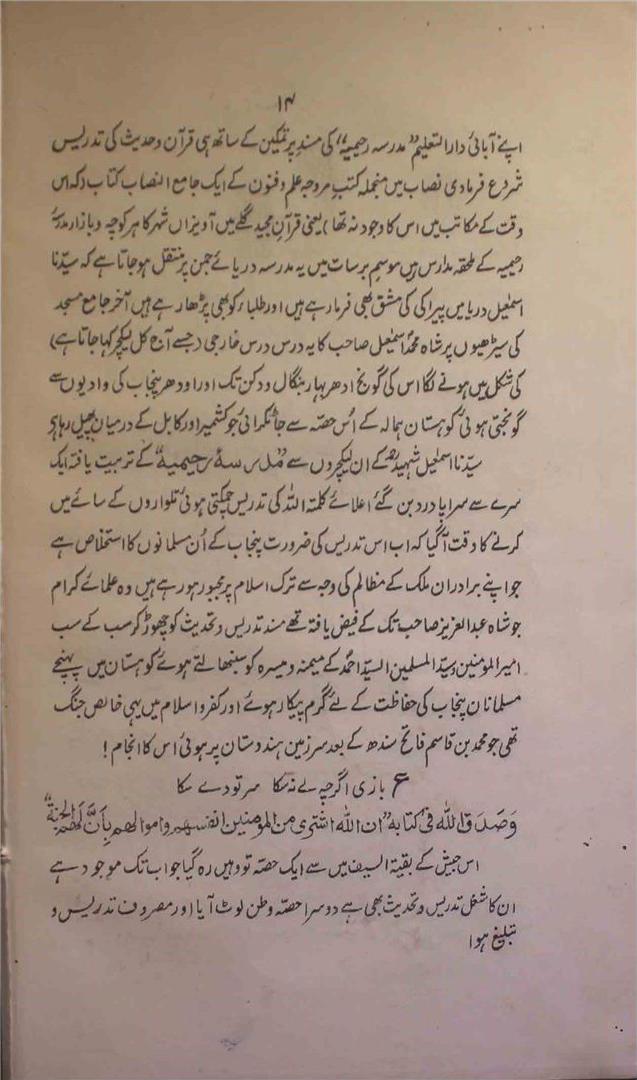 ۱۴
اپنے آبائی دارالتعلیم "مدرسہ رحیمیہ" کی مسند پر تمکین کے ساتھ ہی قرآن وحدیث کی تدریس
شروع فرمادی نصاب میں منجملہ کتب مروجہ علم و فنون کے ایک جامع النصاب کتاب (کہ اس
وقت کے مکاتب میں اس کا وجود نہ تھا) یعنی قرآن مجید گلے میں آویزاں شہر کا ہر کوچہ و بازار مدرسہ
رحیمیہ کے ملحقہ مدارس ہیں موسم برسات میں یہ مدرسہ دریائے جمن پر منتقل ہوجاتا ہے کہ سیّدنا
اسمٰعیل دریا میں پیراکی کی مشق بھی فرمارہے ہیں اور طلباء کو بھی پڑھا رہے ہیں آخر جامع مسجد
کی سیڑھیوں پر شاہ محمد اسمٰعیل صاحب کا یہ درس درس خارجی (جسے آج کل لیکچر کہا جاتا ہے)
کی شکل میں ہونے لگا اس کی گونج ادھر بہار بنگال ودکن تک اور اودھر پنجاب کی وادیوں سے
گونجتی ہوئی کوہستان ہمالہ کے اُس حصہ سے جاٹکرائی جو کشمیر اور کابل کے درمیان پھیل رہا ہی
سیّدنا اسمٰعیل شہیدؒ کے ان لیکچروں سے "مدرسۂ رحیمیہ" کے تربیت یافتہ ایک
سرے سے سراپا درد بن گئے اعلائے کلمتہ اللہ کی تدریس چمکتی ہوئی تلواروں کے سائے میں
کرنے کا وقت آگیا کہ اب اس تدریس کی ضرورت پنجاب کے اُن مسلمانوں کا استخلاص ہے
جو اپنے برادران ملک کے مظالم کی وجہ سے ترک اسلام پر مجبور ہورہے ہیں وہ علمائے کرام
جو شاہ عبدالعزیز صاحب تک کے فیض یافتہ تھے مسند تدریس وتحدیث کو چھوڑ کر سب کے سب
امیرالمومنین وسیّد المسلمین السیّد احمدؒ کے میمنہ ومیسرہ کو سنبھالتے ہوئے کوہستان میں پہنچے
مسلمانان پنجاب کی حفاظت کے لئے گرم پیکار ہوئے اور کفر و اسلام میں یہی خالص جنگ
تھی جو محمد بن قاسم فاتح سندھ کے بعد سرزمین ہندوستان پر ہوئی اس کا انجام!
؏ بازی اگرچہ لے نہ سکا سر تو دے سکا
وَصَدَقَ اللہ فی کتابہ "ان اللہ اشتریٰ من المؤمنین انفسھم واموالھم بِأَنَّ لَھُمُ الْجَنَّۃ"
اس جیش کے بقیۃ السیف میں سے ایک حصہ تو وہیں رہ گیا جو اب تک موجود ہے
ان کا شغل تدریس وتحدیث بھی ہے دوسرا حصہ وطن لوٹ آیا اور مصروف تدریس و
تبلیغ ہوا